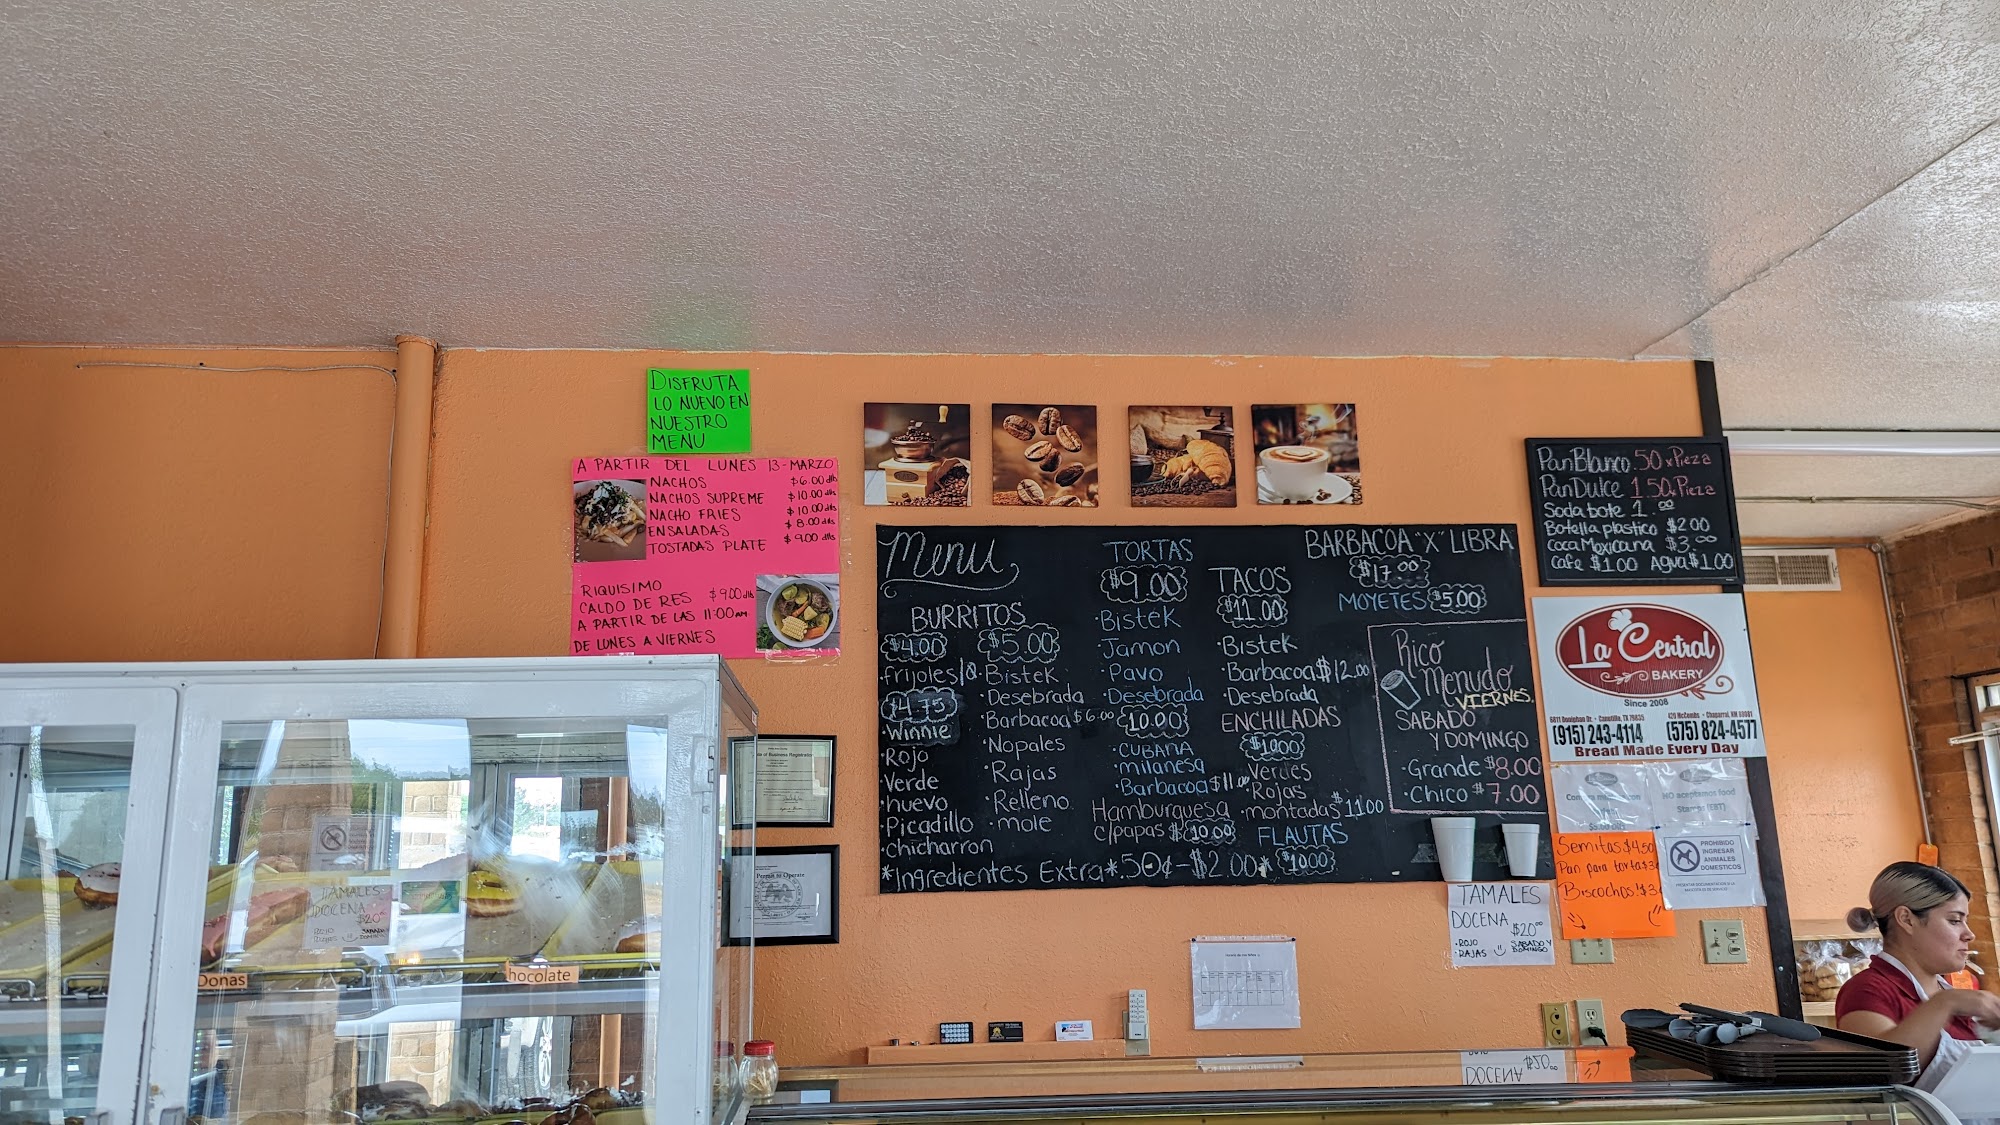 DISFRUTA
LO NUEVO EN
NUESTRO
MENU
A PARTIR DEL LUNES 13-MARZO
NACHOS $6.00 dlls
NACHOS SUPREME $10.00 dlls
NACHO FRIES $10.00 dlls
ENSALADAS $8.00 dlls
TOSTADAS PLATE $9.00 dlls
RIQUISIMO
CALDO DE RES $9.00 dlls
A PARTIR DE LAS 11:00 AM.
DE LUNES A VIERNES
Menu
BURRITOS
$4.00
frijoles/
$4.75
Winnie
Rojo
Verde
huevo
Picadillo
chicharron
$5.00
Bistek
Desebrada
Barbacoa $6.00
Nopales
Rajas
Relleno
mole
TORTAS
$9.00
Bistek
Jamon
Pavo
Desebrada
10.00
CUBANA
milanesa
Barbacoa $11.00
Hamburguesa
c/papas $10.00
TACOS
$11.00
Bistek
Barbacoa $12.00
Desebrada
ENCHILADAS
$10.00
Verdes
Rojas
montadas $11.00
FLAUTAS
$10.00
*Ingredientes Extra* .50¢-$2.00*
BARBACOA "X" LIBRA
$17.00
MOYETES $5.00
Rico
Menudo
VIERNES.
SABADO
Y DOMINGO
Grande $8.00
Chico $7.00
Pan Blanco .50 x Pieza
Pan Dulce 1.50 x Pieza
Soda bote 1.00
Botella plastico $2.00
Coca Mexicana $3.00
Cafe $1.00 Agua $1.00
La Central
BAKERY
Since 2008
6811 Doniphan Dr. - Canutillo, TX 79835
(915) 243-4114
420 McCombs - Chaparral, NM 88081
(575) 824-4577
Bread Made Every Day
NO aceptamos food
Stamps (EBT)
Semitas $4.50
Pan para torta $3
Biscochos $3
PROHIBIDO
INGRESAR
ANIMALES
DOMESTICOS
TAMALES
DOCENA
$20.00
ROJO
RAJAS
SABADO Y
DOMINGO
Permit to Operate
TAMALES
DOCENA
$20
Donas
hocolate
DOCENA